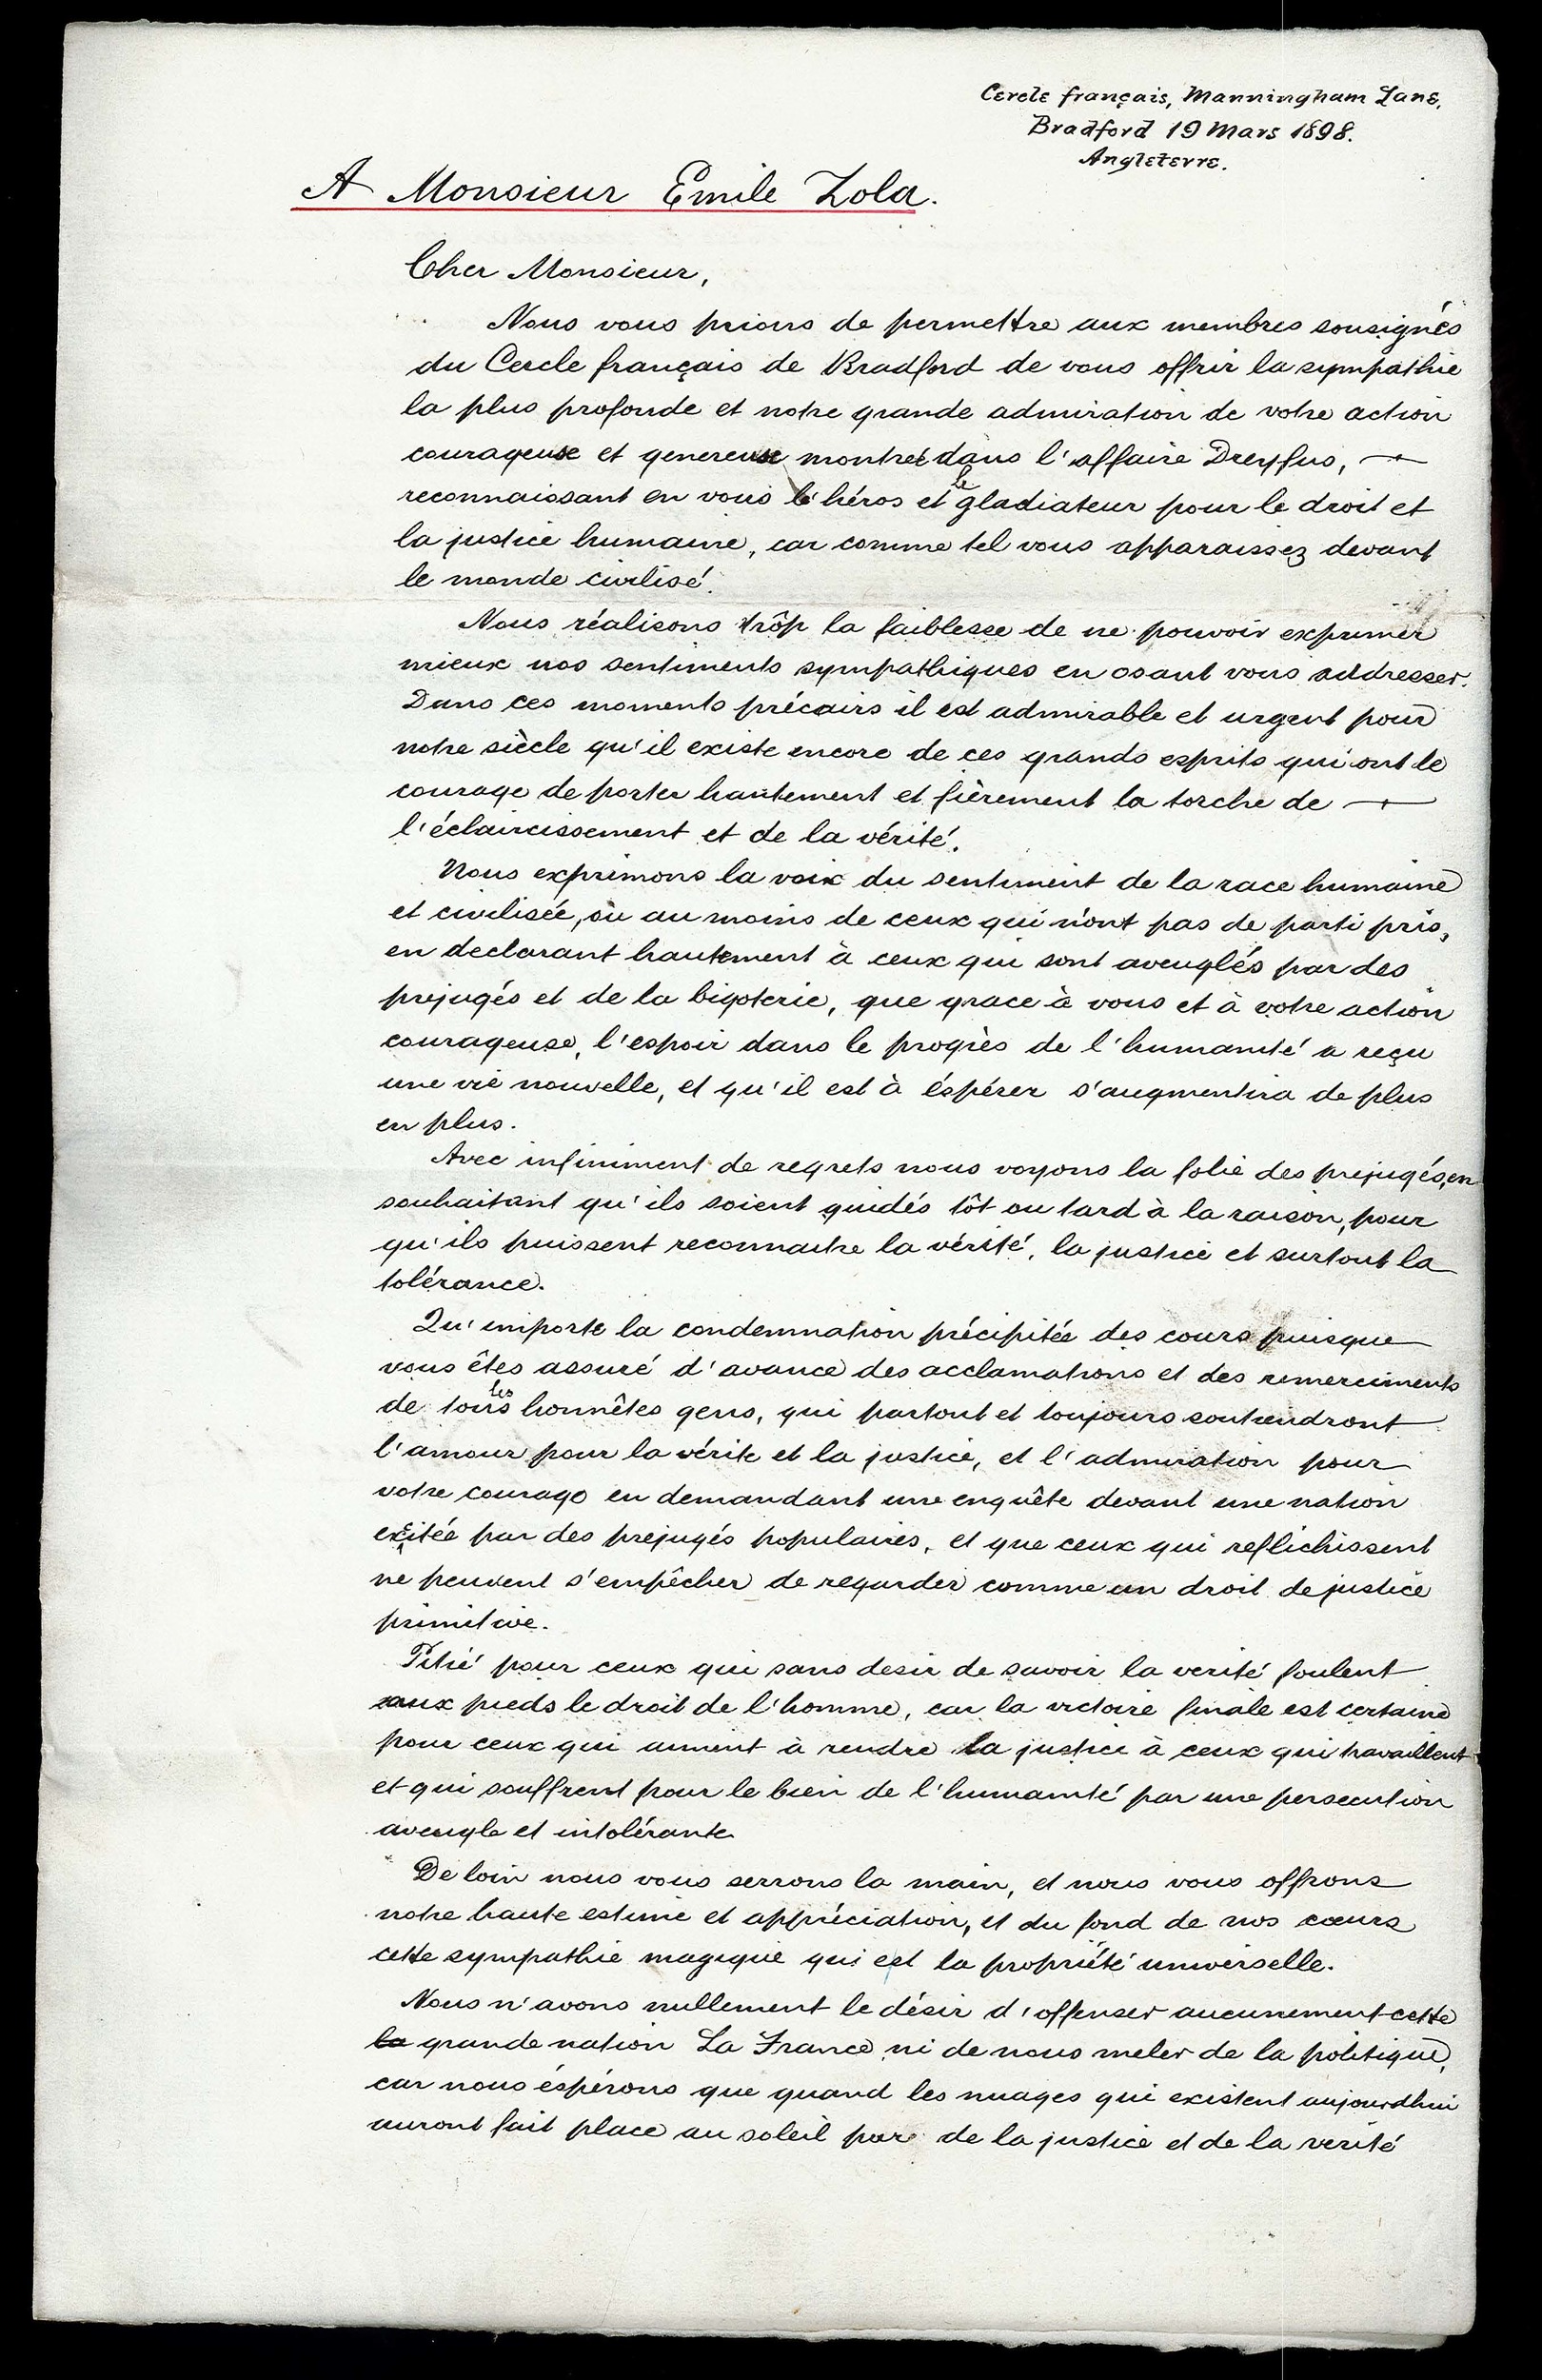 Cercle français, Manningham Lane,
Bradford 19 Mars 1898.
Angleterre.
A Monsieur Emile Zola.
Cher Monsieur,
Nous vous prions de permettre aux membres sousignés
du Cercle français de Bradford de vous offrir la sympathie
la plus profonde et notre grande admiration de votre action
courageuse et genereuse montreé dans l'affaire Dreyfus, —
reconnaissant en vous le héros et le gladiateur pour le droit et
la justice humaine, car comme tel vous apparaissez devant
le monde civilisé.
Nous réalisons trôp la faiblesse de ne pouvoir exprimer
mieux nos sentiments sympathiques en osant vous addresser.
Dans ces moments précairs il est admirable et urgent pour
notre siècle qu'il existe encore de ces grands esprits qui ont le
courage de porter hautement et fièrement la torche de —
l'éclaircissement et de la vérité.
Nous exprimons la voix du sentiment de la race humaine
et civilisée, ou au moins de ceux qui n'ont pas de parti pris,
en declarant hautement à ceux qui sont aveuglés par des
prejugés et de la bigoterie, que grace à vous et à votre action
courageuse, l'espoir dans le progrès de l'humanité a reçu
une vie nouvelle, et qu'il est à éspérer s'augmentira de plus
en plus.
Avec infiniment de regrets nous voyons la folie des prejugés, en
souhaitant qu'ils soient guidés tôt ou tard à la raison, pour
qu'ils puissent reconnaitre la vérité, la justice et surtout la
tolérance.
Qu'importe la condemnation précipitée des cours puisque
vous êtes assuré d'avance des acclamations et des remerciments
de tous les honnêtes gens, qui partout et toujours soutiendront
l'amour pour la vérite et la justice, et l'admiration pour
votre courage en demandant une enquête devant une nation
excitée par des prejugés populaires, et que ceux qui reflichissent
ne peuvent s'empêcher de regarder comme un droit de justice
primitive.
Pitié pour ceux qui sans desir de savoir la verité foulent
aux pieds le droit de l'homme, car la victoire finale est certaine
pour ceux qui aiment à rendre la justice à ceux qui travaillent
et qui souffrent pour le bien de l'humanité par une persecution
aveugle et intolérante
De loin nous vous serrons la main, et nous vous offrons
notre haute estime et appréciation, et du fond de nos cœurs
cette sympathie magique qui est la propriété universelle.
Nous n'avons nullement le désir d'offenser aucunement cette
la grande nation La France ni de nous meler de la politique,
car nous éspérons que quand les nuages qui existent aujourdhui
auront fait place au soleil pur de la justice et de la verité